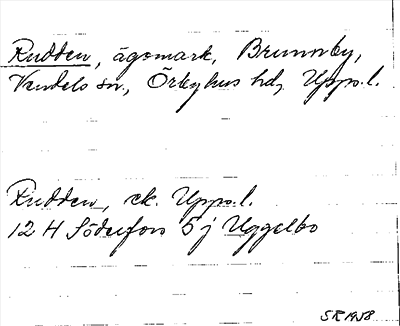 Rudden, ägomark, Brunnby,
Vendels sn., Örbyhus hd, Upps. l.
Rudden, ek. Upps. l.
12 H Söderfors 5 j Uggelbo
SR 1958